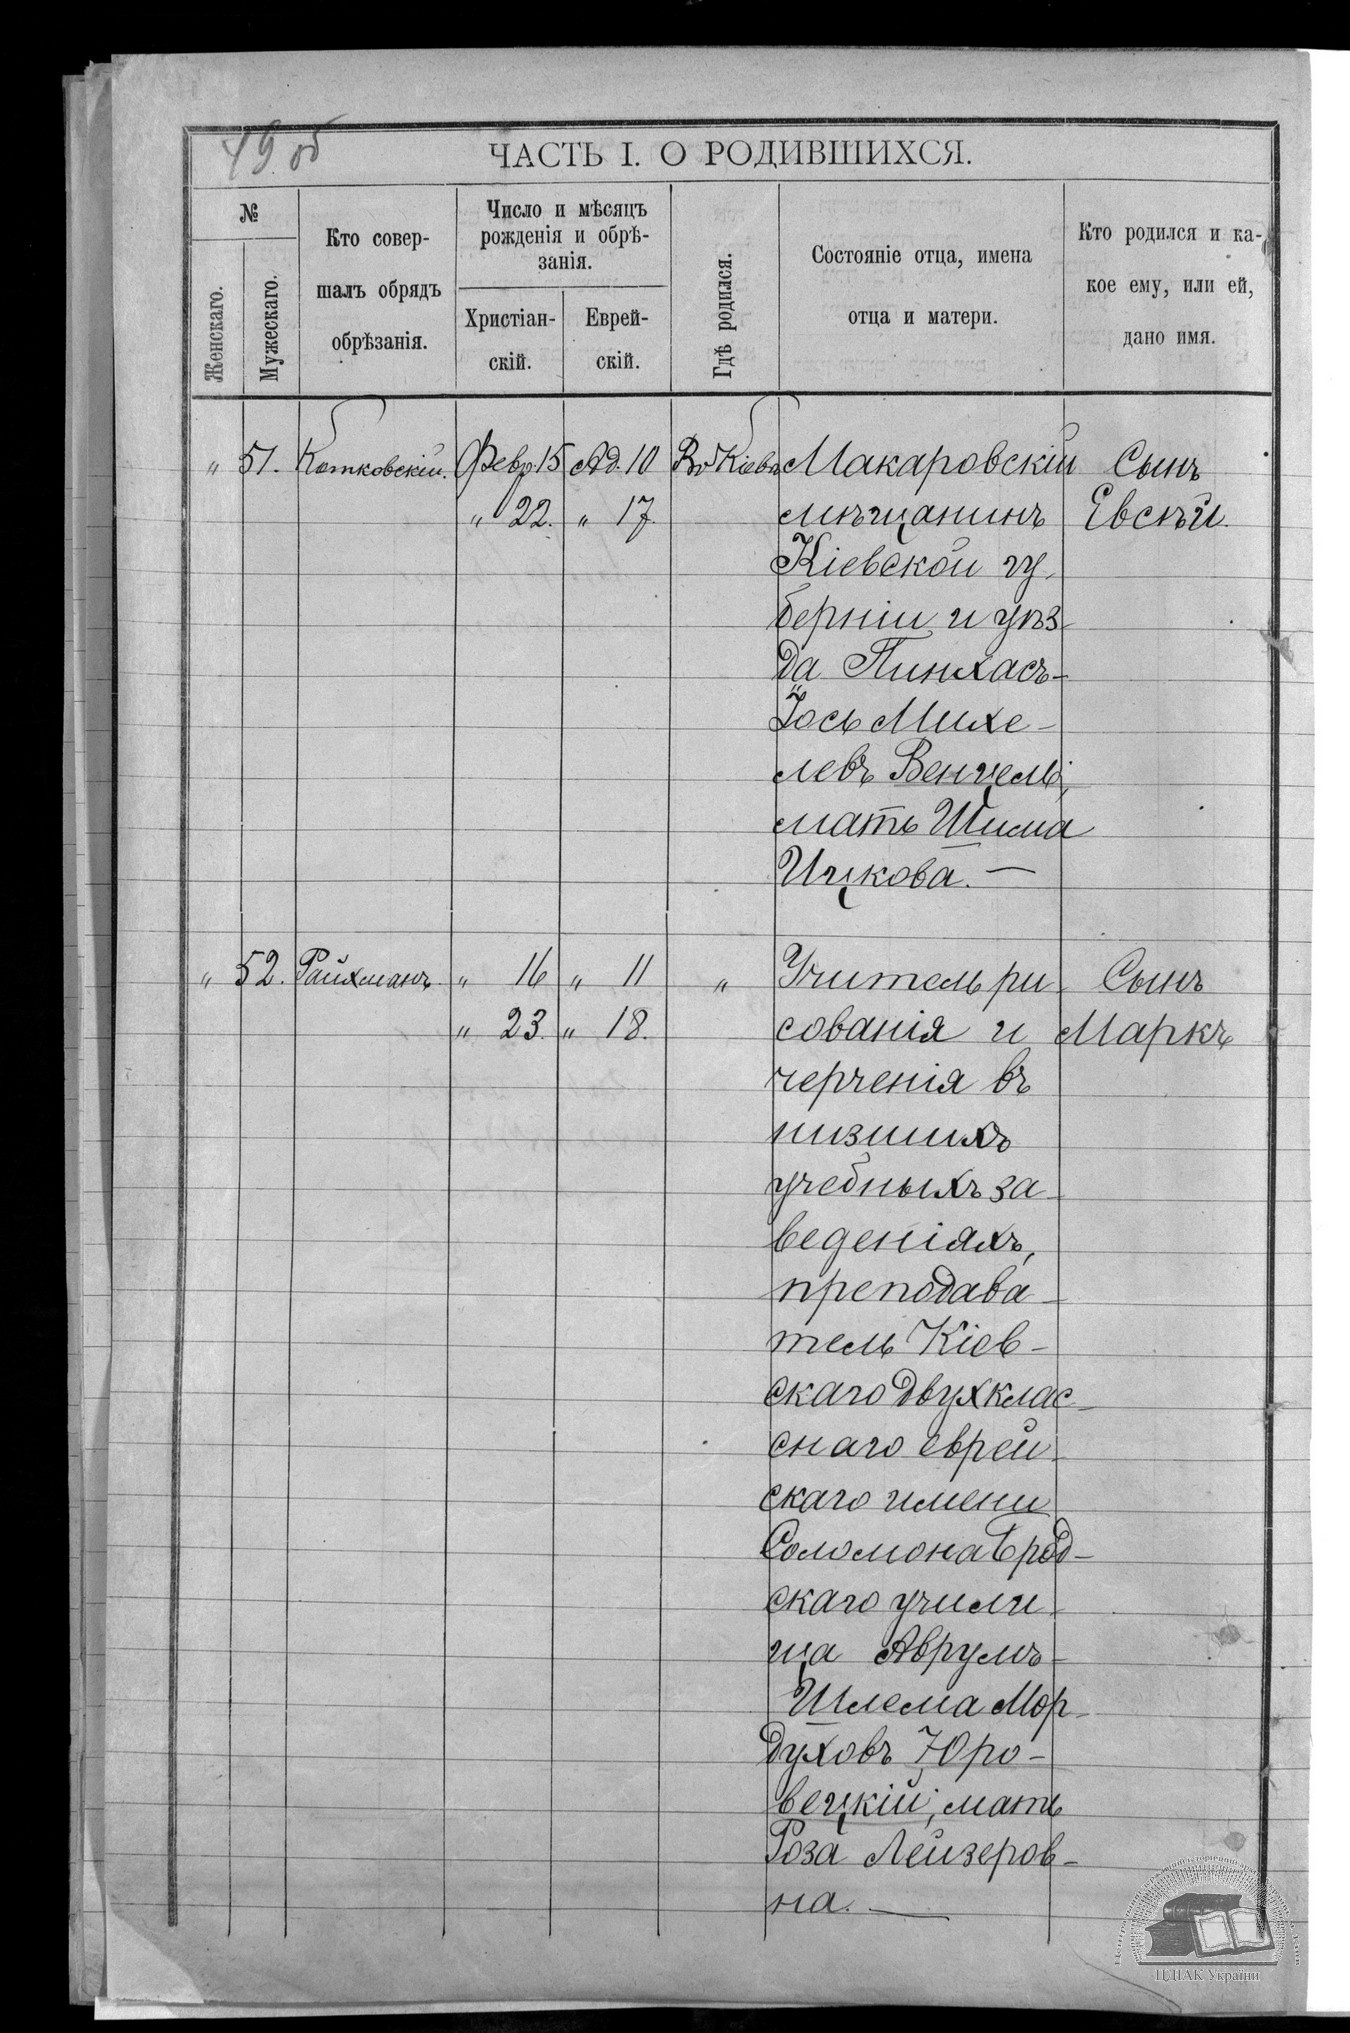 49 об
ЧАСТЬ I. О РОДИВШИХСЯ.
№
Женскаго.
Мужескаго.
Кто совер-
шалъ обрядъ
обрѣзанія.
Число и мѣсяцъ
рожденія и обрѣ-
занія.
Христіан-
скій.
Еврей-
скій.
Гдѣ родился.
Состояніе отца, имена
отца и матери.
Кто родился и ка-
кое ему, или ей,
дано имя.
„ 51. Котковскій. Февр. 15 Ад. 10 Въ Кіевѣ Макаровскій Сынъ
„ 22. „ 17. мѣщанинъ Евсѣй.
Кіевской гу-
берніи и уѣз-
да Пинхасъ-
Іось Михе-
левъ Венгель,
мать Шима
Ицкова. —
„ 52. Райхманъ. „ 16 „ 11 „ Учитель ри- Сынъ
„ 23. „ 18. сованія и Маркъ
черченія въ
низшихъ
учебныхъ за-
веденіяхъ,
преподава-
тель Кіев-
скаго двухклас-
снаго еврей-
скаго имени
Соломона Брод-
скаго учили-
ща Аврумъ-
Шлема Мор-
духовъ Юро-
вецкій, мать
Роза Лейзеров-
на. —
ЦДІАК України